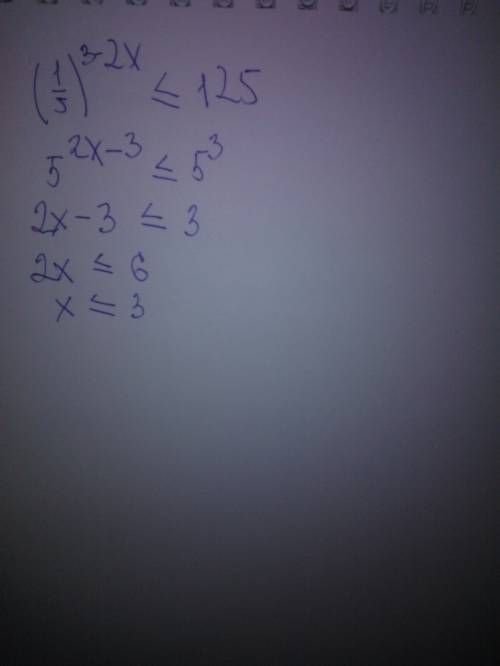 (1/5)^(3-2x) ≤ 125
5^(2x-3) ≤ 5^3
2x-3 ≤ 3
2x ≤ 6
x ≤ 3